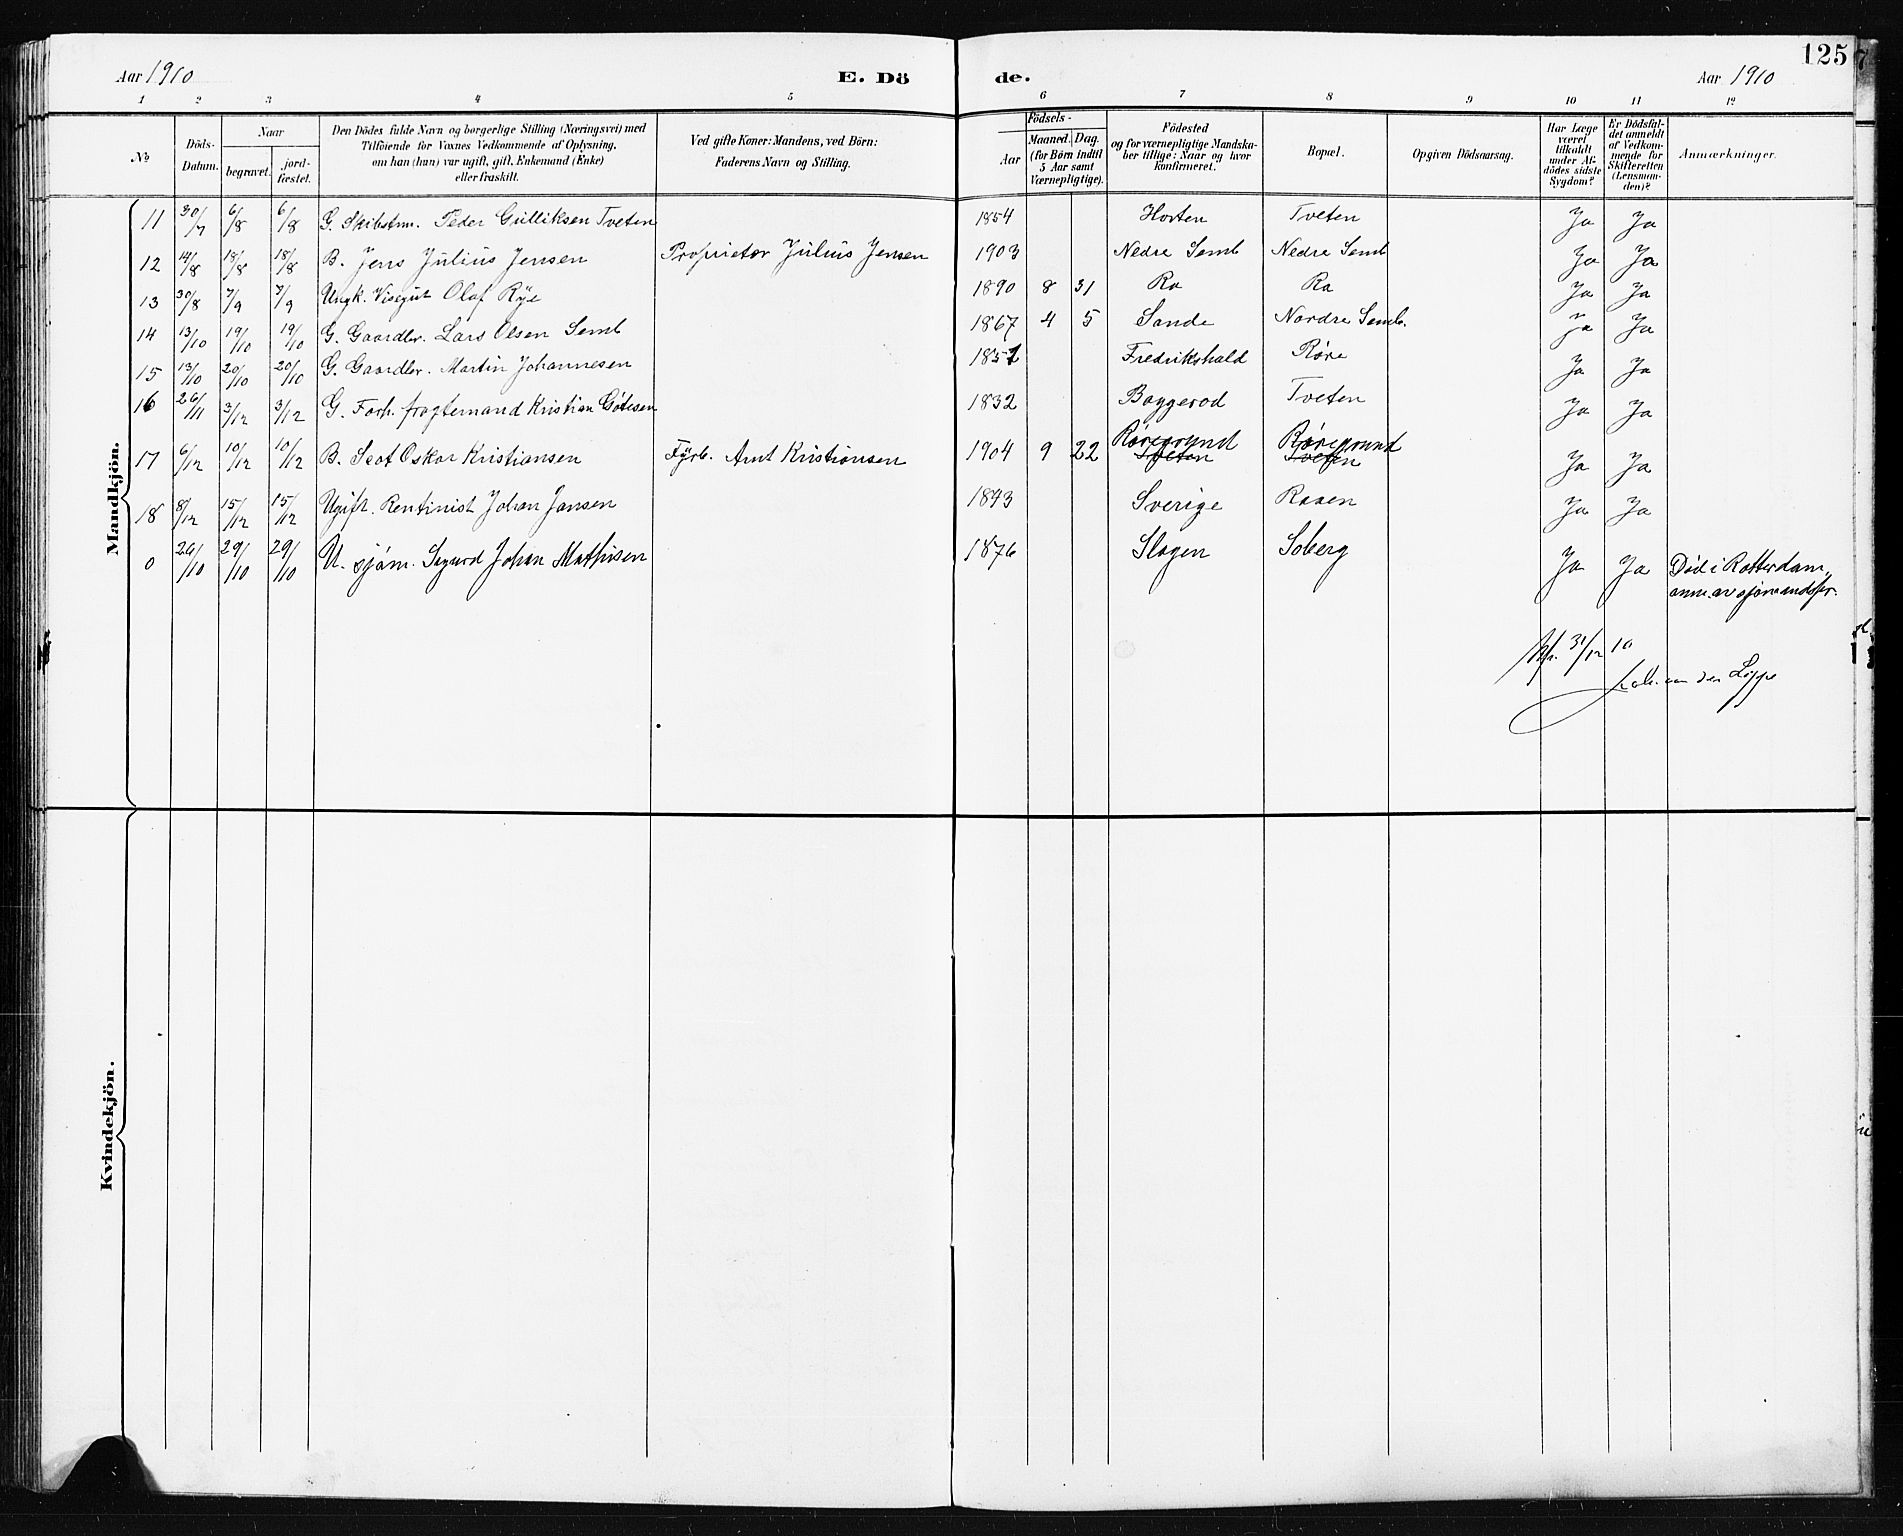 125
Aar 1910 E. Dö de. Aar 1910
1 2 3 4 5 6 7 8 9 10 11 12
No
Döds-Datum.
Naar
begravet. jord-fæstet.
Den Dödes fulde Navn og borgerlige Stilling (Næringsvei) med
Tilföiende for Voxnes Vedkommende af Oplysning,
om han (hun) var ugift, gift, Enkemand (Enke)
eller fraskilt.
Ved gifte Koner: Mandens, ved Börn:
Faderens Navn og Stilling.
Födsels-
Aar
Maaned. Dag.
(for Börn indtil
5 Aar samt
Værnepligtige).
Födested
og for værnepligtige Mandska-
ber tillige: Naar og hvor
konfirmeret.
Bopæl.
Opgiven Dödsaarsag.
Har Læge
været
tilkaldt
under Af-
dödes sidste
Sygdom?
Er Dödsfal-
det anmeldt
af Vedkom-
mende for
Skifteretten
(Lensman-
den)?
Anmærkninger.
Mandkjön.
11 30/7 6/8 6/8 G. Skibstm. Peder Gulliksen Tveten 1854 Horten Tveten Ja Ja
12 14/8 18/8 18/8 B. Jens Julius Jensen Proprietær Julius Jensen 1903 Nedre Semb Nedre Semb Ja Ja
13 30/8 7/9 7/9 Ungk. Visegut Olaf Rye 1890 8 31 Ra Ra Ja Ja
14 13/10 19/10 19/10 G. Gaardbr. Lars Olsen Semb 1867 4 5 Sande Nordre Semb. Ja Ja
15 13/10 20/10 20/10 G. Gaardbr. Martin Johannesen 1851 Fredrikshald Røre Ja Ja
16 26/11 3/12 3/12 G. Forh. fragtemand Kristian Gøtesen 1832 Baggerød Tveten Ja Ja
17 6/12 10/12 10/12 B. Scot Oskar Kristiansen Fyrb. Arnt Kristiansen 1904 9 22 Røregrund Tveten Røregrund Tveten Ja Ja
18 8/12 15/12 15/12 Ugift. Rentinist Johan Jansen 1843 Sverige Raaen Ja Ja
0 26/10 29/10 29/10 U. sjøm. Sigurd Johan Mathisen 1876 Slagen Solberg Ja Ja Død i Rotterdam,
anm. av sjømandspr.
31/12 10
van der Lippe
Kvindekjön.